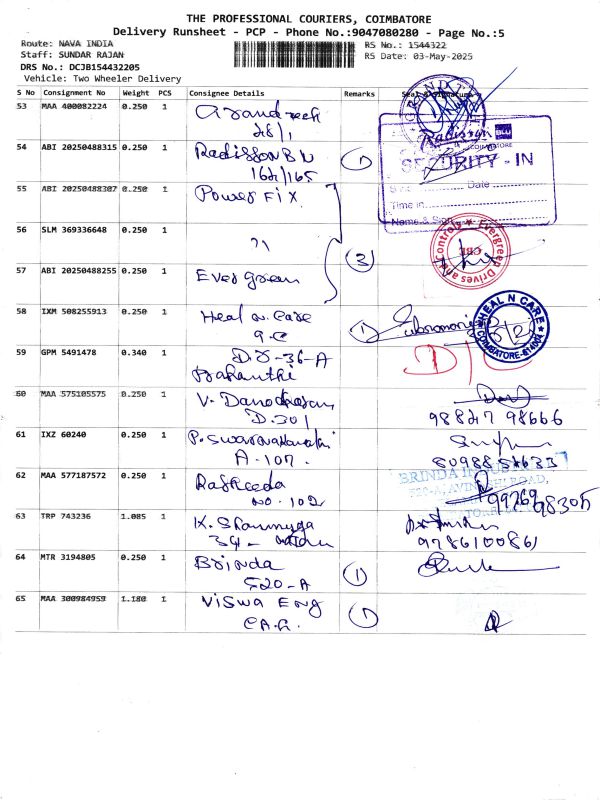 THE PROFESSIONAL COURIERS, COIMBATORE
Delivery Runsheet - PCP - Phone No.:9047080280 - Page No.:5
Route: NAVA INDIA
RS No.: 1544322
Staff: SUNDAR RAJAN
RS Date: 03-May-2025
DRS No.: DCJB1544322205
Vehicle: Two Wheeler Delivery
S No Consignment No Weight PCS Consignee Details Remarks Seal & Signature
53 MAA 400082224 0.250 1
28/1
54 ABI 20250488315 0.250 1 Radisson BN 1
162/165
Radisson BLU
COIMBATORE
SECURITY - IN
Date
Time in
Name & Sign
55 ABI 20250488307 0.250 1 Power Fix
56 SLM 369336648 0.250 1 "
3
Evergreen Drives and Controls
CBE
57 ABI 20250488255 0.250 1 Evergreen
58 IXM 508255913 0.250 1 Heal n care 1
9.C
HEAL N CARE
COIMBATORE-641004
59 GPM 5491478 0.340 1 D.S-36-A D/C
60 MAA 575105575 0.250 1 V. Damodharan
D.301
98847 98666
61 IXZ 60240 0.250 1 P. Swarnalakshmi
A-107.
62 MAA 577187572 0.250 1 Rasheeda
No. 102
BRINDA
99769 98305
63 TRP 743236 1.085 1 K. Shanmuga
34-
9786100861
64 MTR 3194805 0.250 1 Brinda 1
520-A
65 MAA 300984959 1.180 1 Viswa Eng 1